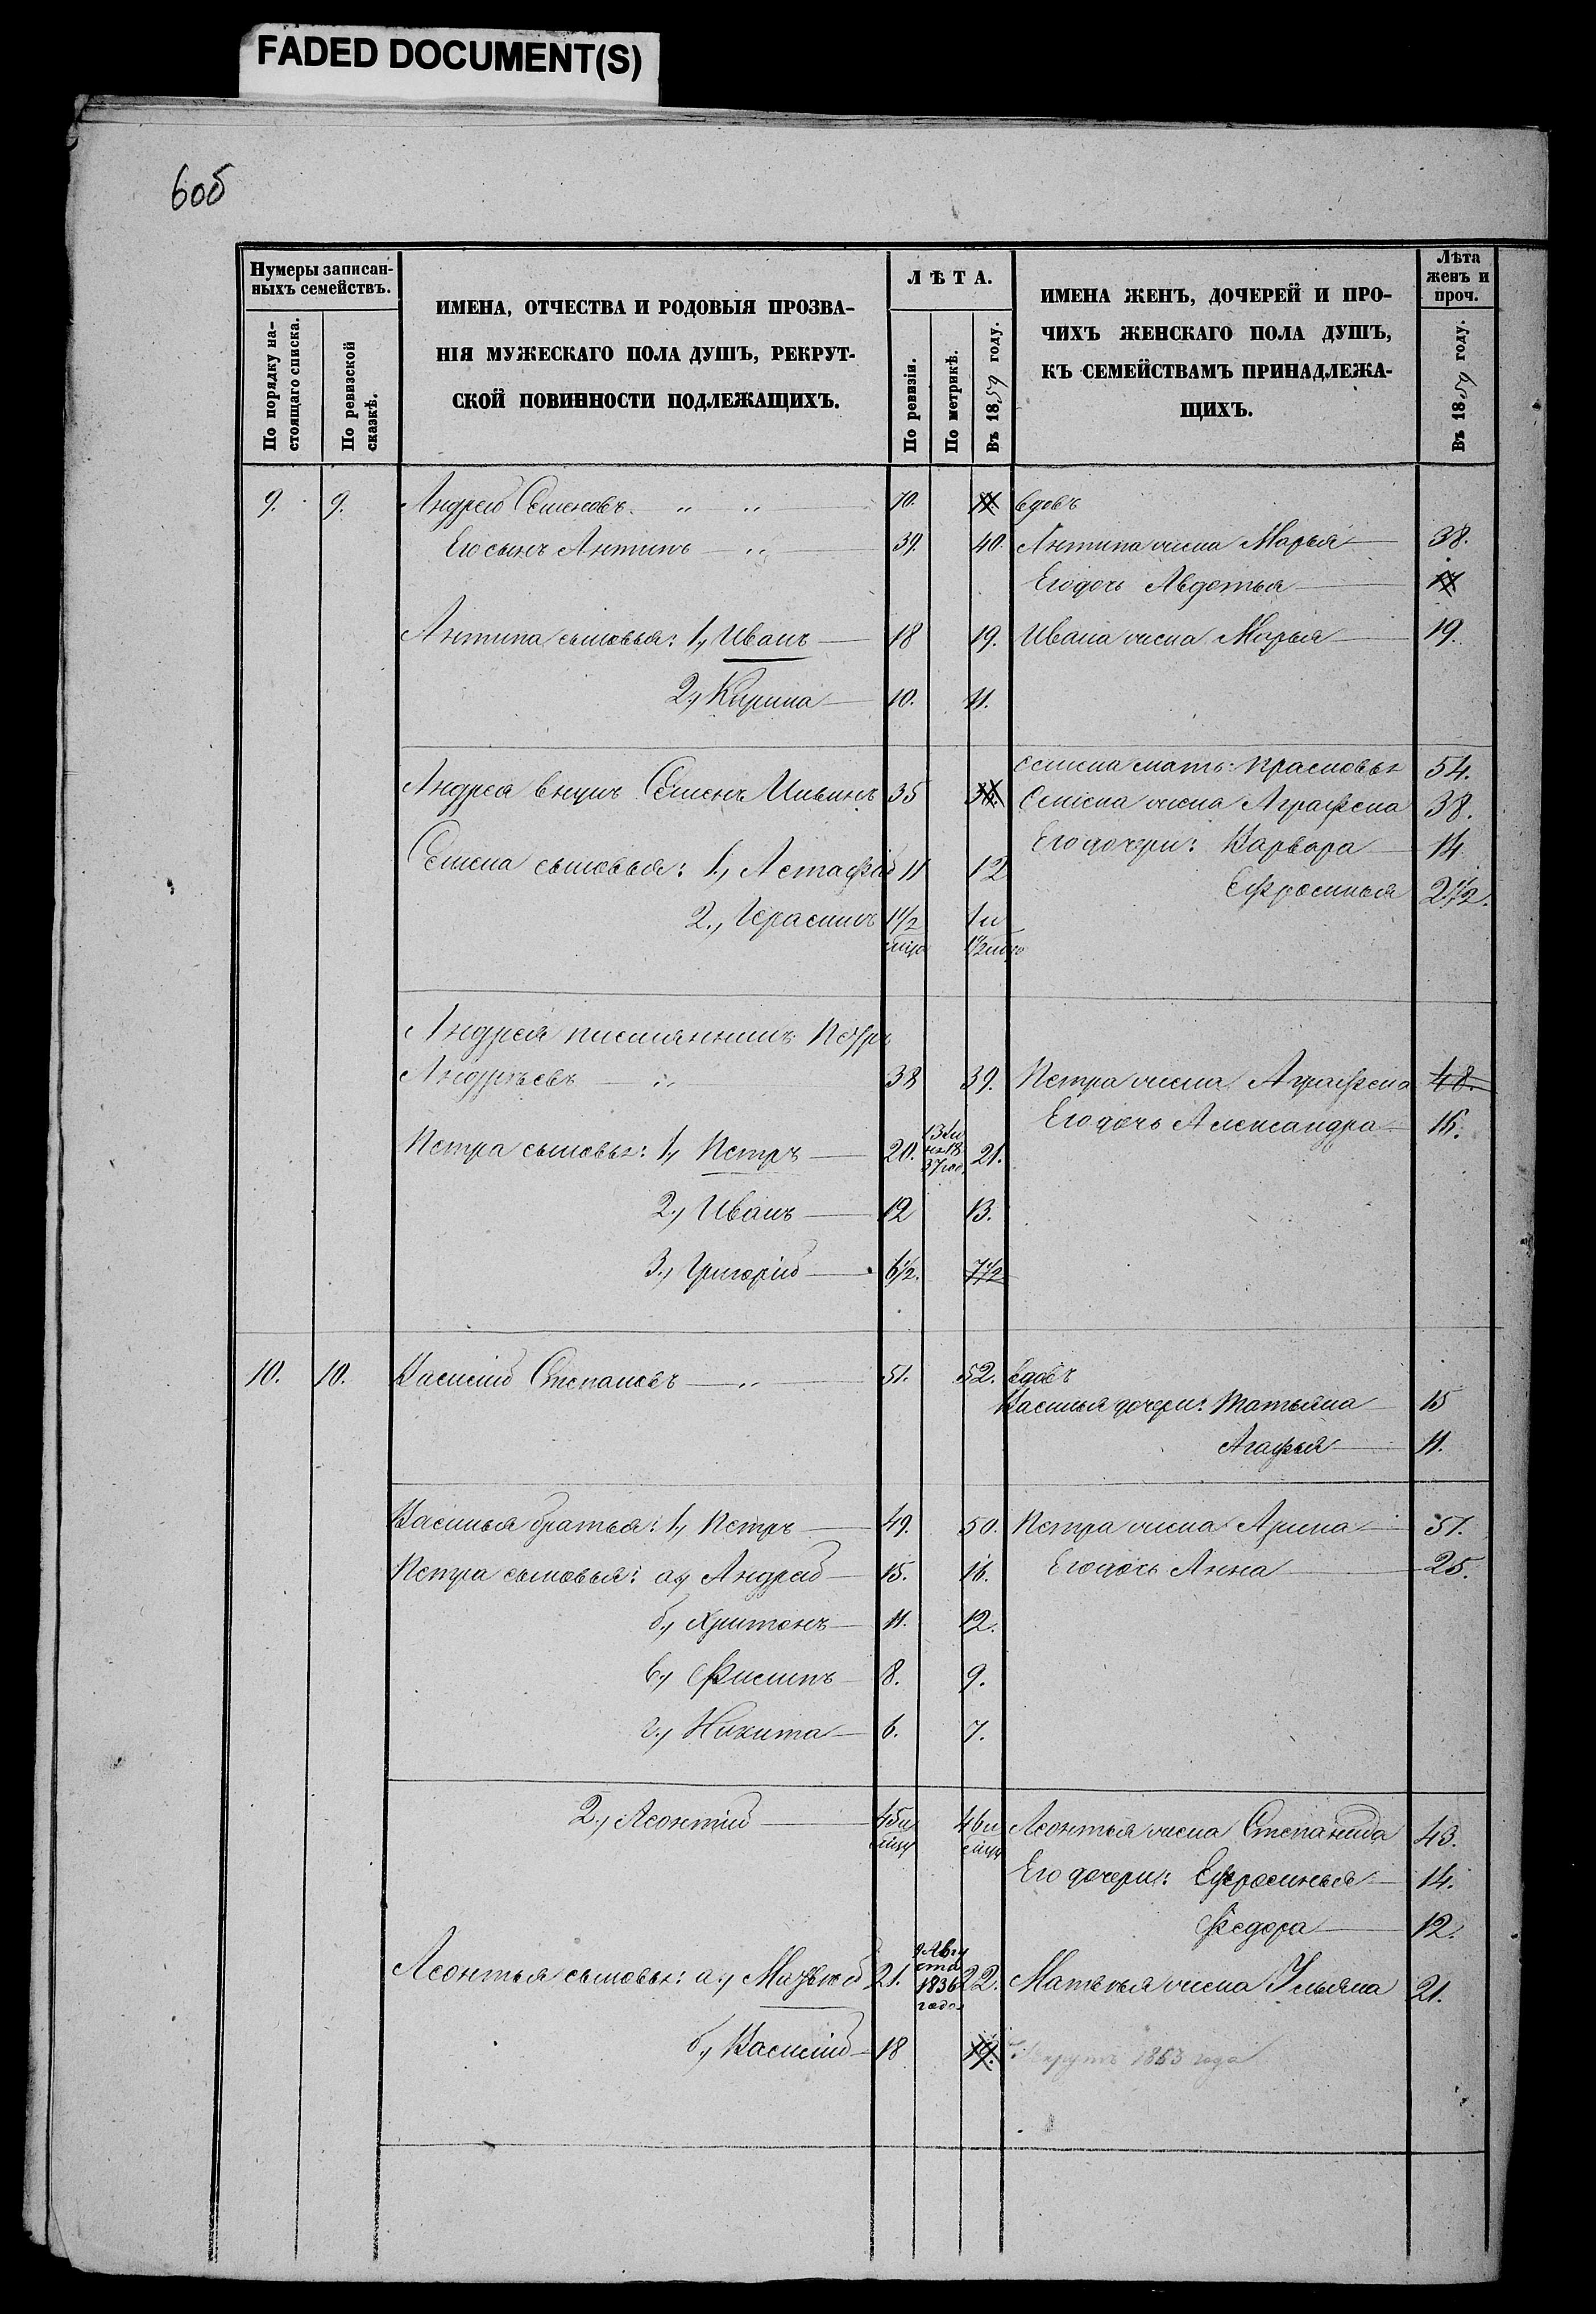 FADED DOCUMENT(S)
6об
Нумеры записан-
ныхъ семействъ.
По порядку на-
стоящаго списка.
По ревизской
сказкѣ.
ИМЕНА, ОТЧЕСТВА И РОДОВЫЯ ПРОЗВА-
НІЯ МУЖЕСКАГО ПОЛА ДУШЪ, РЕКРУТ-
СКОЙ ПОВИННОСТИ ПОДЛЕЖАЩИХЪ.
ЛѢТА.
По ревизіи.
По метрикѣ.
Въ 1859 году.
ИМЕНА ЖЕНЪ, ДОЧЕРЕЙ И ПРО-
ЧИХЪ ЖЕНСКАГО ПОЛА ДУШЪ,
КЪ СЕМЕЙСТВАМЪ ПРИНАДЛЕЖА-
ЩИХЪ.
Лѣта
женъ и
проч.
Въ 1859 году.
9. 9. Андрей Семеновъ " " 70. вдовъ
Его сынъ Антипъ " 39. 40. Антипа жена Марья 38.
Его дочь Авдотья
Антипа сыновья: 1, Иванъ 18 19. Ивана жена Марья 19.
2, Кирила 10. 11.
Семена мать: 54.
Андрея внукъ Семенъ Ильинъ 35 Семена жена Аграфена 38.
Его дочери: Варвара 14
Семена сыновья: 1, Астафій 11 12
Ефросинья 2 1/2.
2., Герасимъ 1 1/2
Андрея племянникъ Петръ
Андреевъ " 38 39. Петра жена Аграфена 48.
Его дочь Александра 16.
Петра сыновья: 1, Петръ 20. 21.
2., Иванъ 12 13.
3., Григорій 6 1/2. 7 1/2
10. 10. Василій Степановъ " 51. 52. вдовъ
Василья дочери: Татьяна 15
Агафья 11.
Василья братья: 1, Петръ 49. 50. Петра жена Арина 51.
Петра сыновья: а, Андрей 15. 16. Его дочь Анна 25.
б, Харитонъ 11. 12.
в, Филипъ 8. 9.
г., Никита 6. 7.
2., Леонтій 45 и 46 и Леонтья жена Степанида 43.
Его дочери: Ефросинья 14.
Федора 12.
Леонтья сыновья: а., Матвей 21. 9 Авгу
ста
1836
года 22. Матвѣя жена Ульяна 21.
б, Василій 18 19. 1863 года